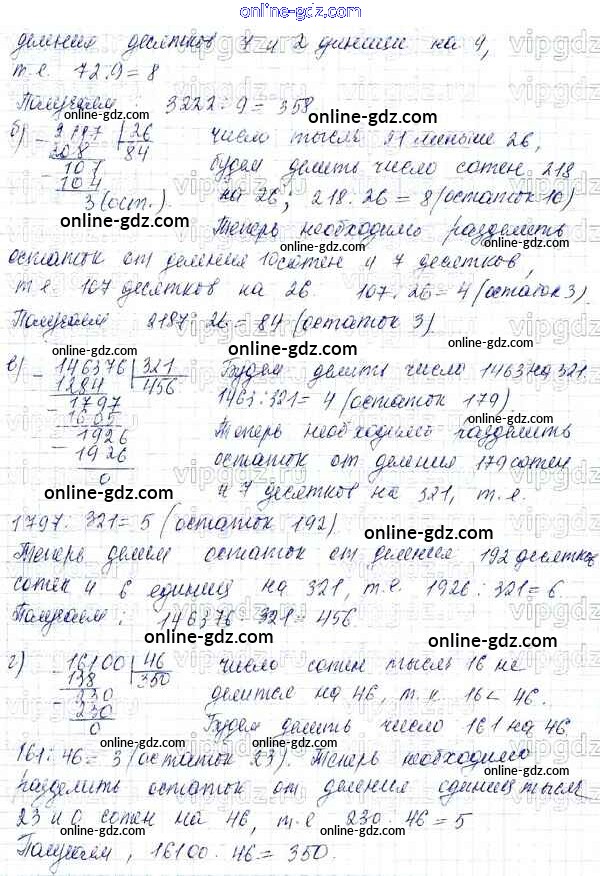 online-gdz.com
деления десятков 7 и 2 единиц на 9,
т.е. 72:9=8
Получаем: 3222:9=358
online-gdz.com online-gdz.com
б) 2187 26 число тысяч 21 меньше 26,
208 84 будем делить число сотен 218
107
104
3 (ост.) на 26, 218:26=8 (остаток 10)
online-gdz.com online-gdz.com
Теперь необходимо разделить
остаток от деления 10 сотен и 7 десятков,
online-gdz.com
т.е. 107 десятков на 26. 107:26=4 (остаток 3).
Получаем 2187:26=84 (остаток 3)
online-gdz.com online-gdz.com
в) 146376 321 Будем делить число 1463 на 321.
1284 456 1463:321=4 (остаток 179)
1797 online-gdz.com
1605 Теперь необходимо разделить
1926 остаток от деления 179 сотен
1926
0 online-gdz.com
online-gdz.com и 7 десятков на 321, т.е.
1797:321=5 (остаток 192).
online-gdz.com
Теперь делим остаток от деления 192 десятков
сотен и 6 единиц на 321, т.е. 1926:321=6.
online-gdz.com
Получаем: 146376:321=456.
online-gdz.com online-gdz.com
г) 16100 46 число сотен тысяч 16 не
138 350 делится на 46, т.к. 16<46.
230
230
0 Будем делить число 161 на 46
online-gdz.com online-gdz.com
161:46=3 (остаток 23). Теперь необходимо
разделить остаток от деления единиц тысяч
online-gdz.com
23 и 0 сотен на 46, т.е 230:46=5
online-gdz.com
Получаем, 16100:46=350.
online-gdz.com
vipgdz